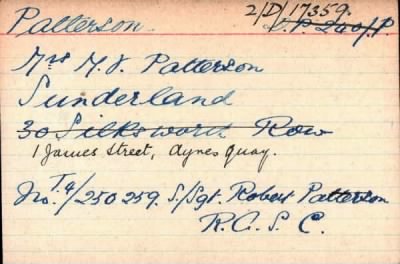 Patterson.
2/D/17359.
D.P. 240/P.
Mrs M.J. Patterson
Sunderland
30 Silksworth Row
1 James Street, Aynes Quay.
No. T.4/250259. S/Sgt. Robert Patterson
R.A.S.C.